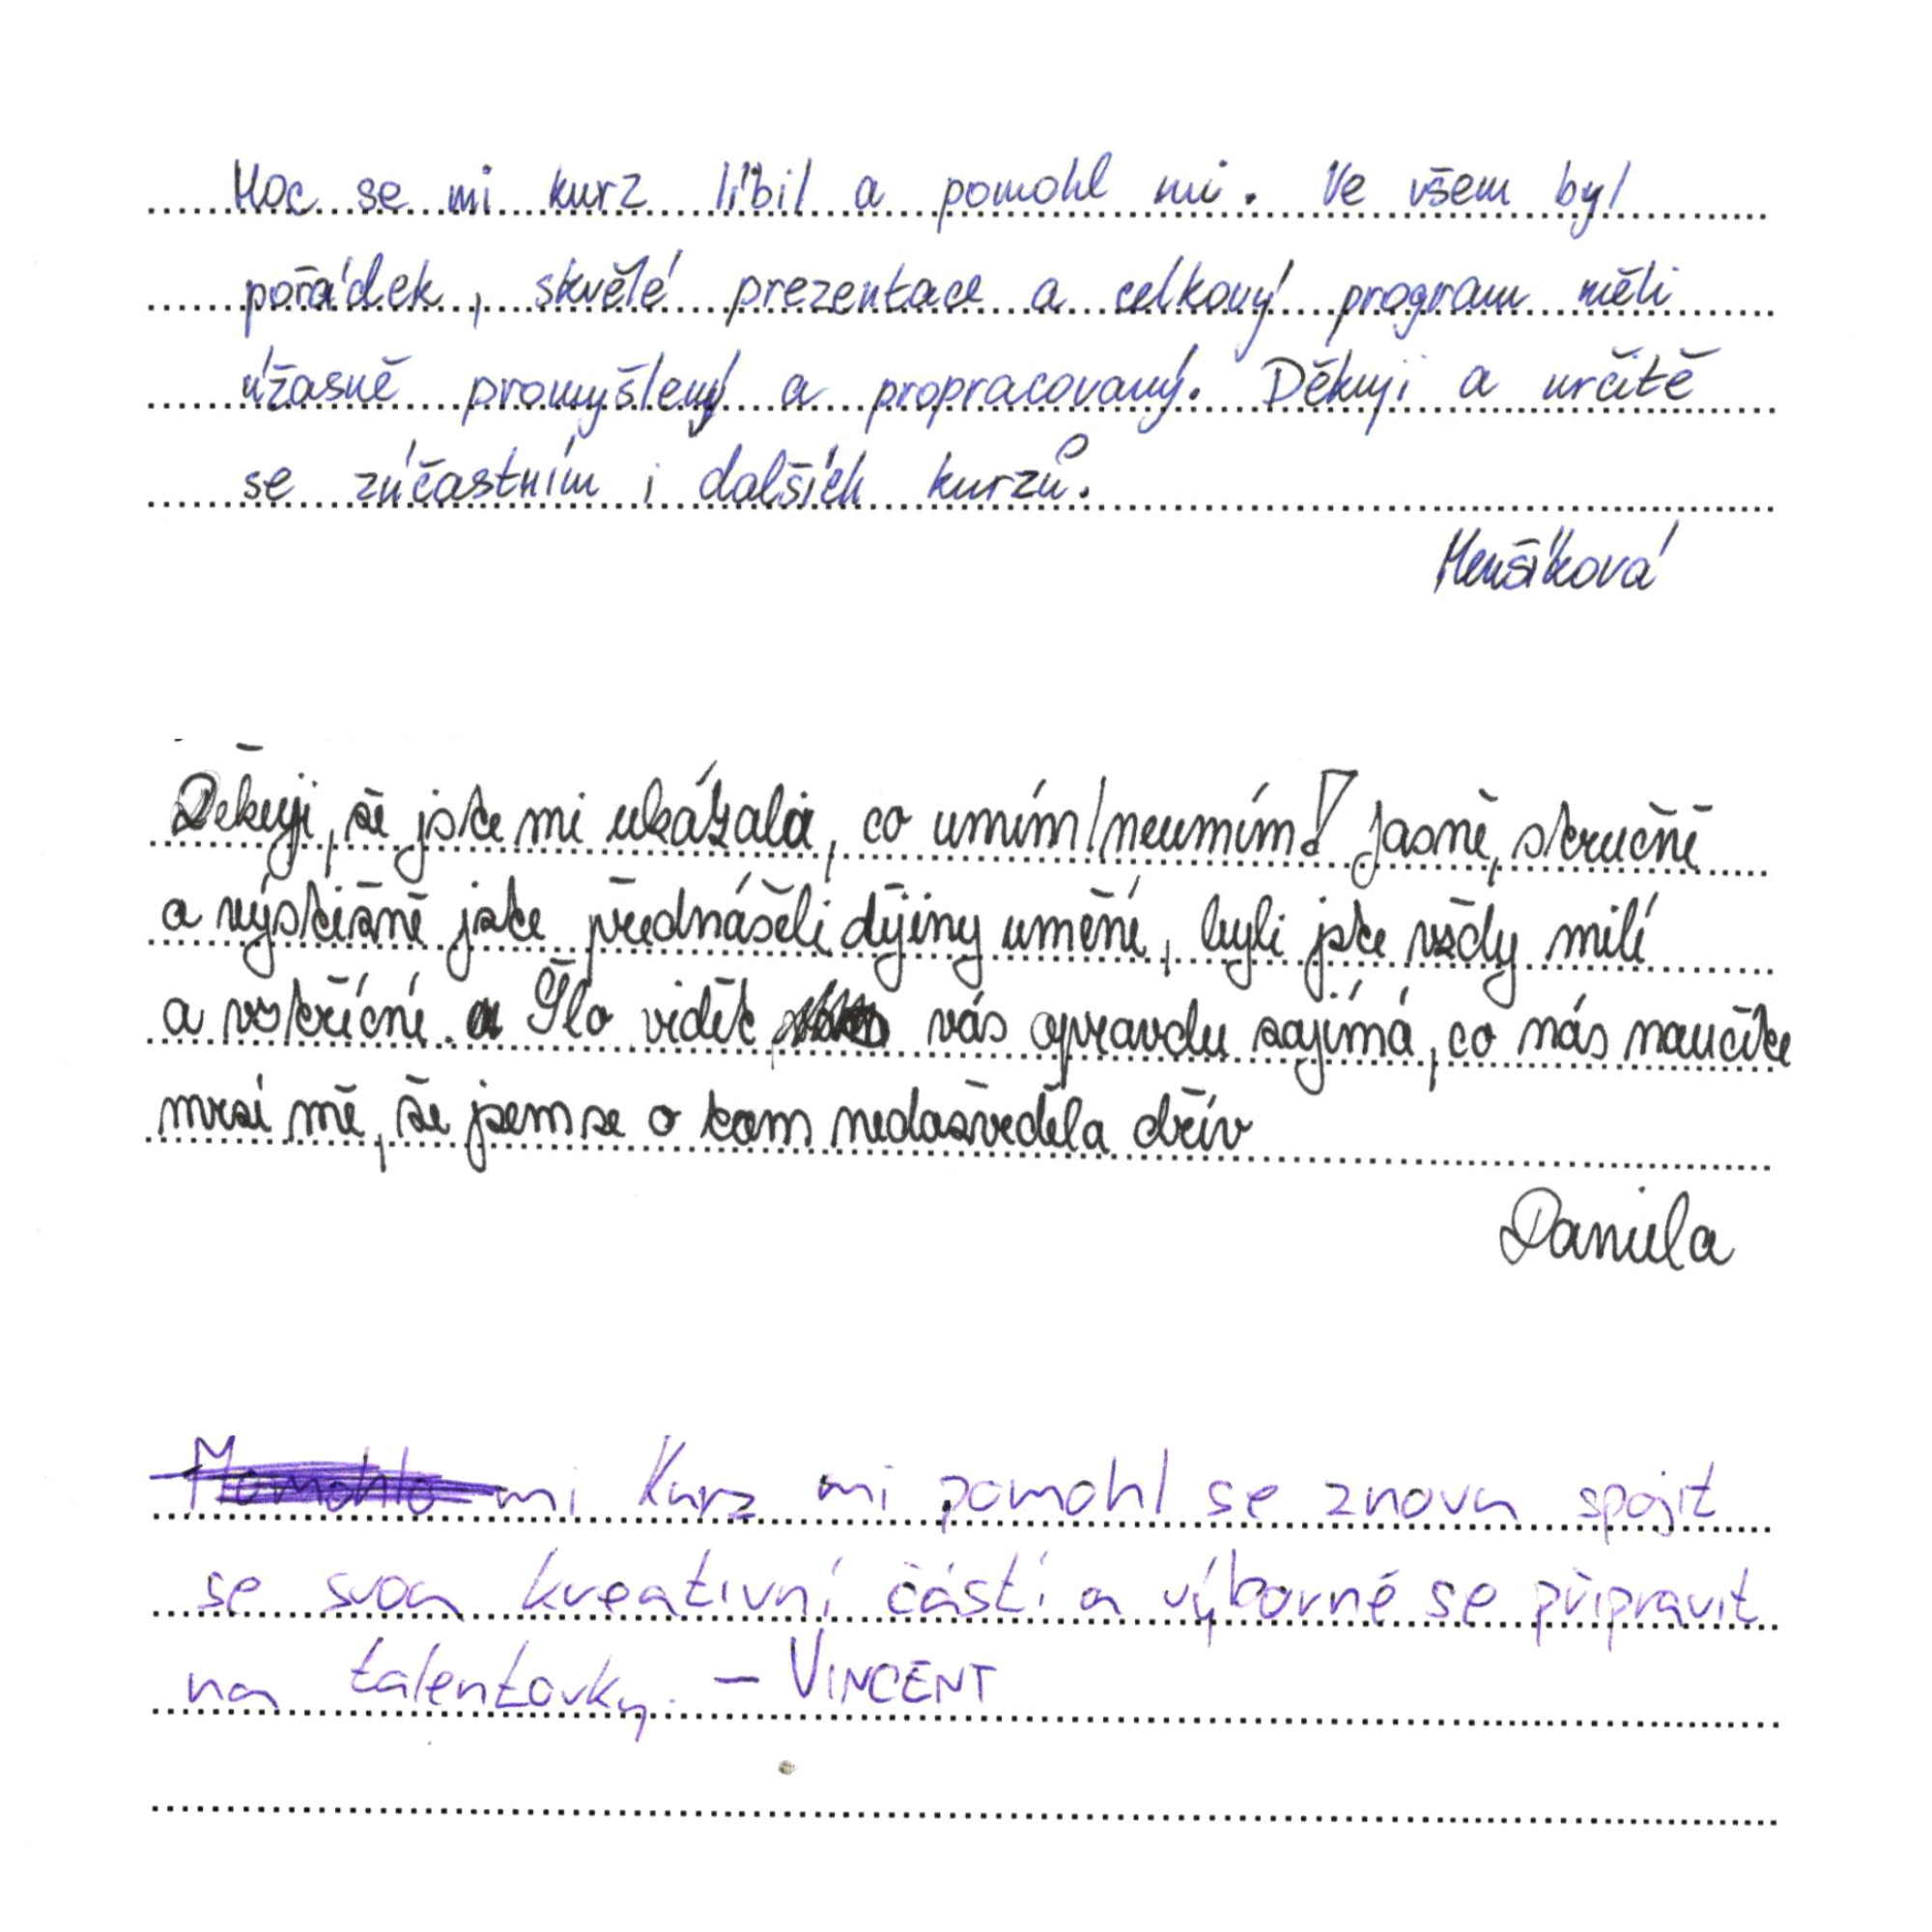 Moc se mi kurz líbil a pomohl mi. Ve všem byl
pořádek, skvělé prezentace a celkový program měli
úžasně promyšlený a propracovaný. Děkuji a určitě
se zúčastním i dalších kurzů.
Menšíková
Děkuji, že jste mi ukázala, co umím/neumím! Jasně, stručně
a výstižně jste přednášeli dějiny umění, byli jste vždy milí
a vstřícní. Šlo vidět, vás opravdu zajímá, co nás naučíte
mrzí mě, že jsem se o tom nedozvěděla dřív
Daniela
mi Kurz mi pomohl se znova spojit
se svou kreativní částí a výborně se připravit
na talentovky. – VINCENT